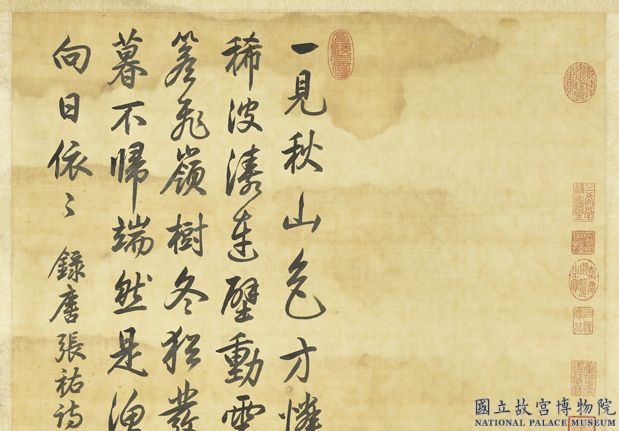 一見秋山色方憐
稀波濤連壁動雲
簷飛嶺樹冬猶發
暮不歸端然是漁
向日依〻 錄唐張祐詩
國立故宮博物院
NATIONAL PALACE MUSEUM